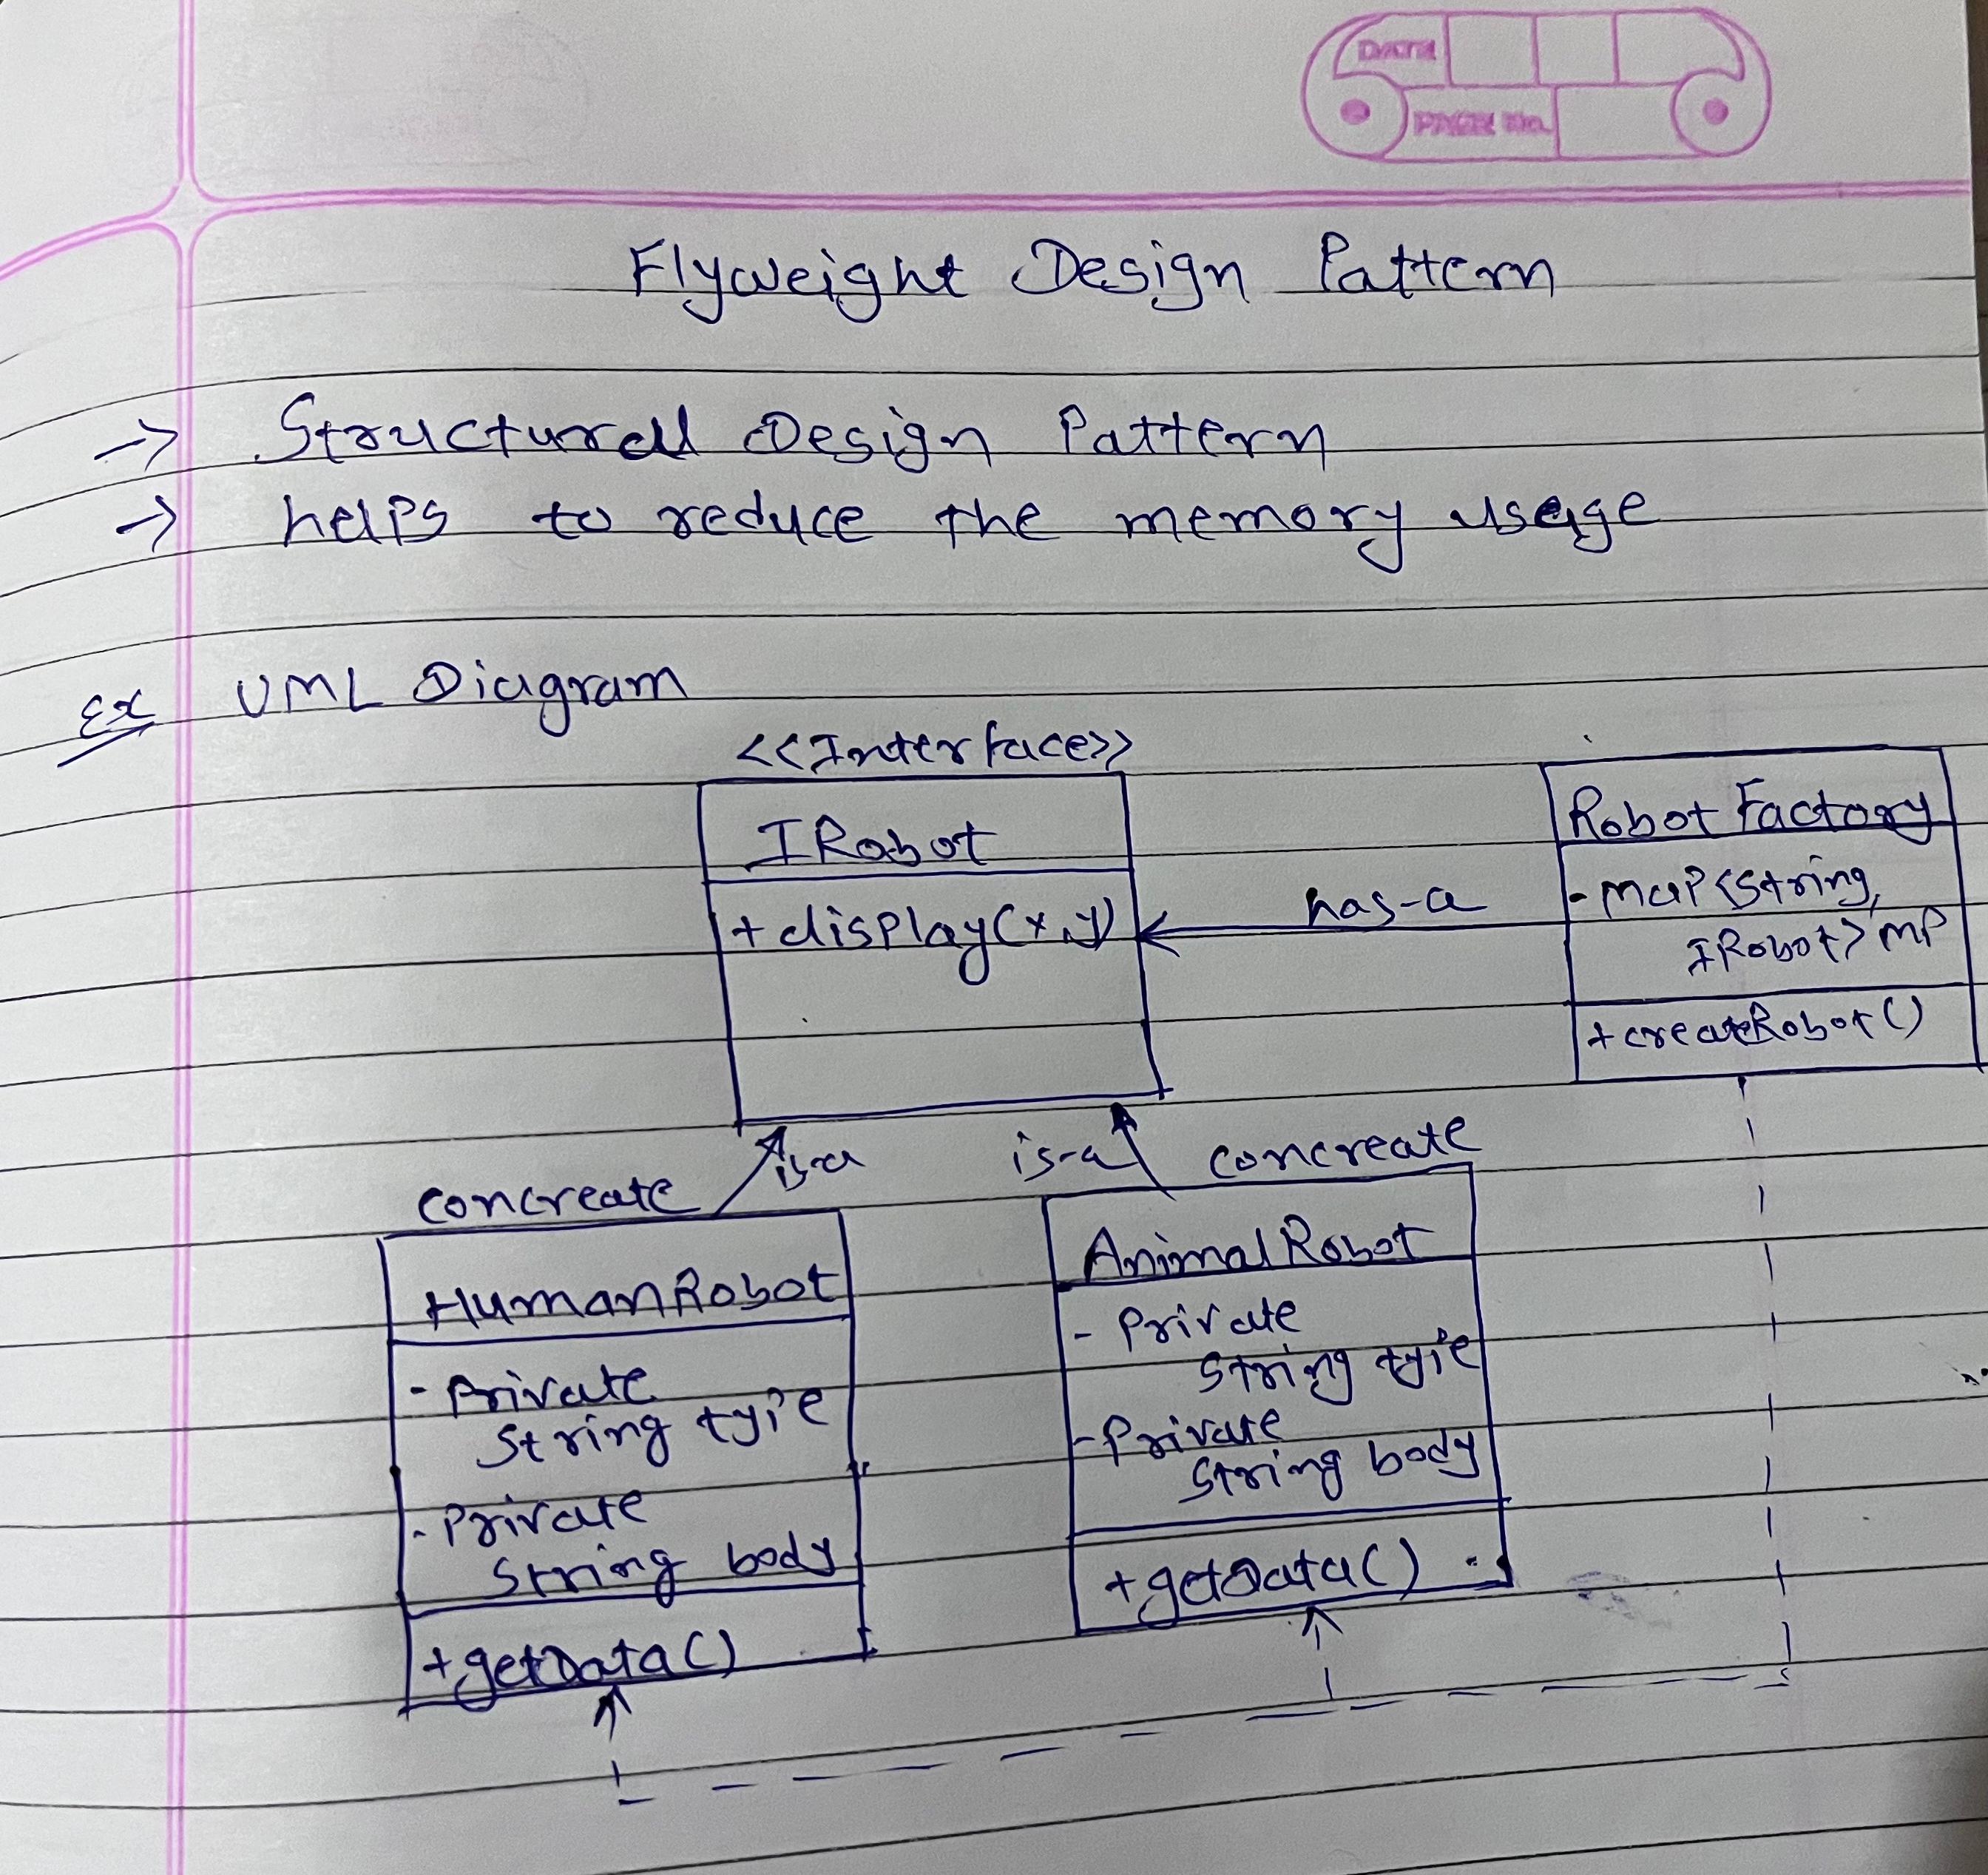 DATE
PAGE No.
Flyweight Design Pattern
-> Structural Design Pattern
-> helps to reduce the memory usage
Ex UML Diagram
<<Interface>>
IRobot
+ display(x,y)
has-a
Robot Factory
- map<String,
IRobot> mp
+ createRobot()
is-a
is-a
concreate
HumanRobot
- Private
String type
- Private
String body
+ getData()
concreate
AnimalRobot
- Private
String type
- Private
String body
+ getData()